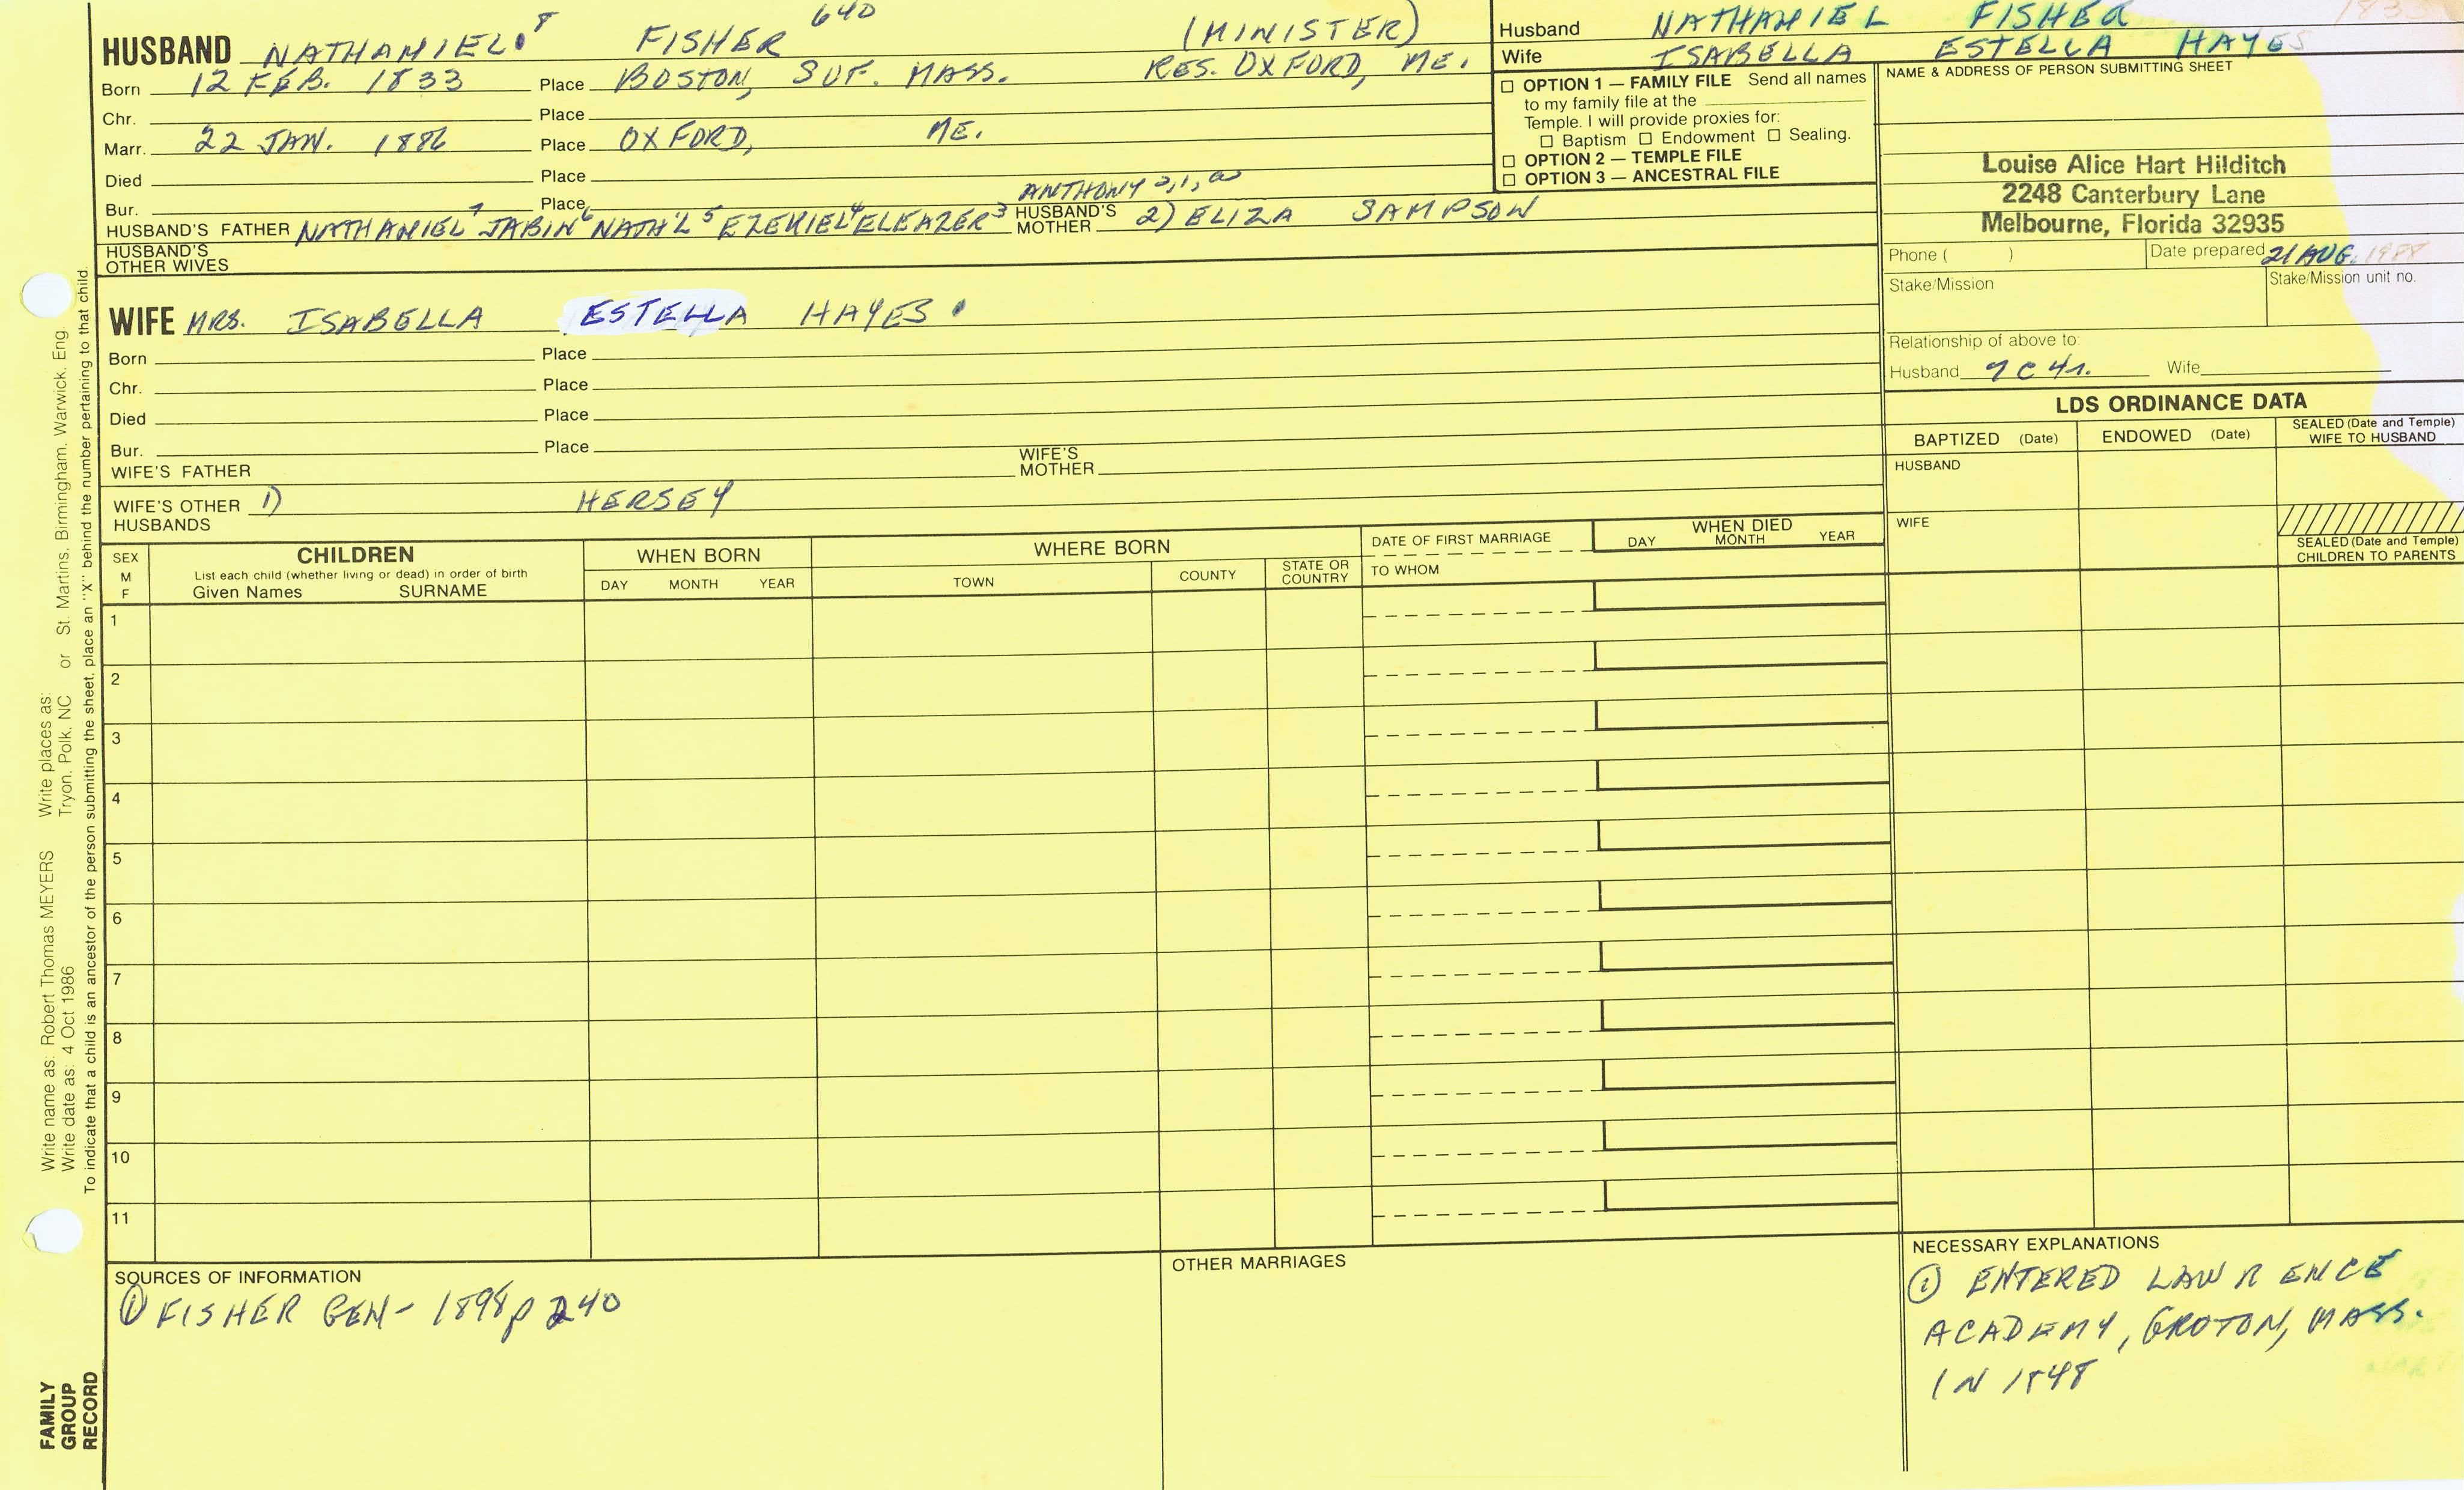 HUSBAND NATHANIEL 8 FISHER 640 (MINISTER)
Born 12 FEB. 1833 Place BOSTON, SUF. MASS. RES. OXFORD, ME.
Chr. Place
Marr. 22 JAN. 1886 Place OXFORD, ME.
Died Place
Bur. Place ANTHONY 2,1,
HUSBAND'S FATHER NATHANIEL 7 JABIN 6 NATH'L 5 EZEKIEL 4 ELEAZER 3 HUSBAND'S MOTHER 2) ELIZA SAMPSON
HUSBAND'S OTHER WIVES
WIFE MRS. ISABELLA ESTELLA HAYES
Born Place
Chr. Place
Died Place
Bur. Place
WIFE'S FATHER WIFE'S MOTHER
WIFE'S OTHER HUSBANDS 1) HERSEY
Husband NATHANIEL FISHER
Wife ISABELLA ESTELLA HAYES
☐ OPTION 1 — FAMILY FILE Send all names
to my family file at the
Temple. I will provide proxies for:
☐ Baptism ☐ Endowment ☐ Sealing.
☐ OPTION 2 — TEMPLE FILE
☐ OPTION 3 — ANCESTRAL FILE
NAME & ADDRESS OF PERSON SUBMITTING SHEET
Louise Alice Hart Hilditch
2248 Canterbury Lane
Melbourne, Florida 32935
Phone ( ) Date prepared 21 AUG. 1988
Stake/Mission Stake/Mission unit no.
Relationship of above to:
Husband 7C4r. Wife
LDS ORDINANCE DATA
BAPTIZED (Date) ENDOWED (Date) SEALED (Date and Temple) WIFE TO HUSBAND
HUSBAND
WIFE
SEALED (Date and Temple)
CHILDREN TO PARENTS
SEX M F
CHILDREN
List each child (whether living or dead) in order of birth
Given Names SURNAME
WHEN BORN
DAY MONTH YEAR
WHERE BORN
TOWN COUNTY STATE OR COUNTRY
DATE OF FIRST MARRIAGE
TO WHOM
WHEN DIED
DAY MONTH YEAR
1
2
3
4
5
6
7
8
9
10
11
SOURCES OF INFORMATION
① FISHER GEN- 1898 p 240
OTHER MARRIAGES
NECESSARY EXPLANATIONS
① ENTERED LAWRENCE
ACADEMY, GROTON, MASS.
IN 1848
Write name as: Robert Thomas MEYERS Write places as:
Write date as: 4 Oct 1986 Tryon, Polk, NC or St. Martins, Birmingham, Warwick, Eng.
To indicate that a child is an ancestor of the person submitting the sheet, place an "X" behind the number pertaining to that child.
FAMILY
GROUP
RECORD